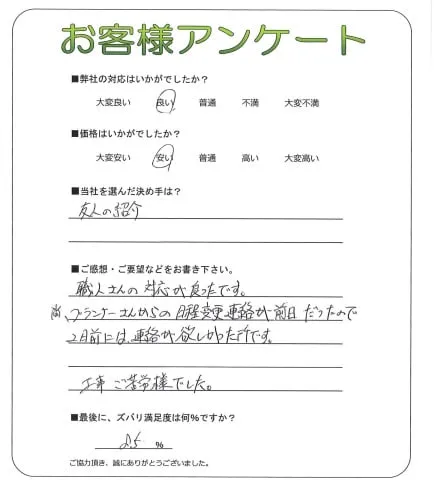 お客様アンケート
■弊社の対応はいかがでしたか?
大変良い 良い 普通 不満 大変不満
■価格はいかがでしたか?
大変安い 安い 普通 高い 大変高い
■当社を選んだ決め手は?
友人の紹介
■ご感想・ご要望などをお書き下さい。
職人さんの対応が良ったです。
尚、プランナーさんからの日程変更連絡が前日だったので
2日前には、連絡が欲しかった所です。
工事ご苦労様でした。
■最後に、ズバリ満足度は何%ですか?
85 %
ご協力頂き、誠にありがとうございました。